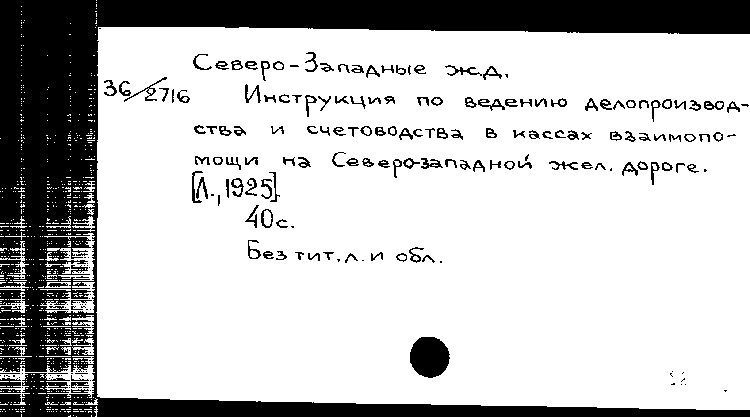 Северо-Западные ж.д.
36/2716 Инструкция по ведению делопроизвод-
ства и счетоводства в кассах взаимопо-
мощи на Северо-западной жел. дороге.
[Л., 1925].
40 с.
Без тит. л. и обл.